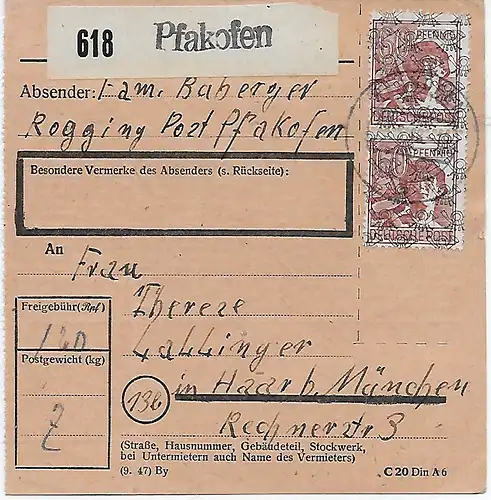 618 Pfakofen
Absender: Fam. Baberger
Rogging Post Pfakofen
Besondere Vermerke des Absenders (s. Rückseite):
An Frau
Therese
Lallinger
in Haar b. München
Rechnerstr 3
Freigebühr (Rpf)
120
Postgewicht (kg)
7
13b
(Straße, Hausnummer, Gebäudeteil, Stockwerk,
bei Untermietern auch Name des Vermieters)
(9. 47) By
C 20 Din A 6
60 PFENNIG
DEUTSCHE POST
60 PFENNIG
DEUTSCHE POST